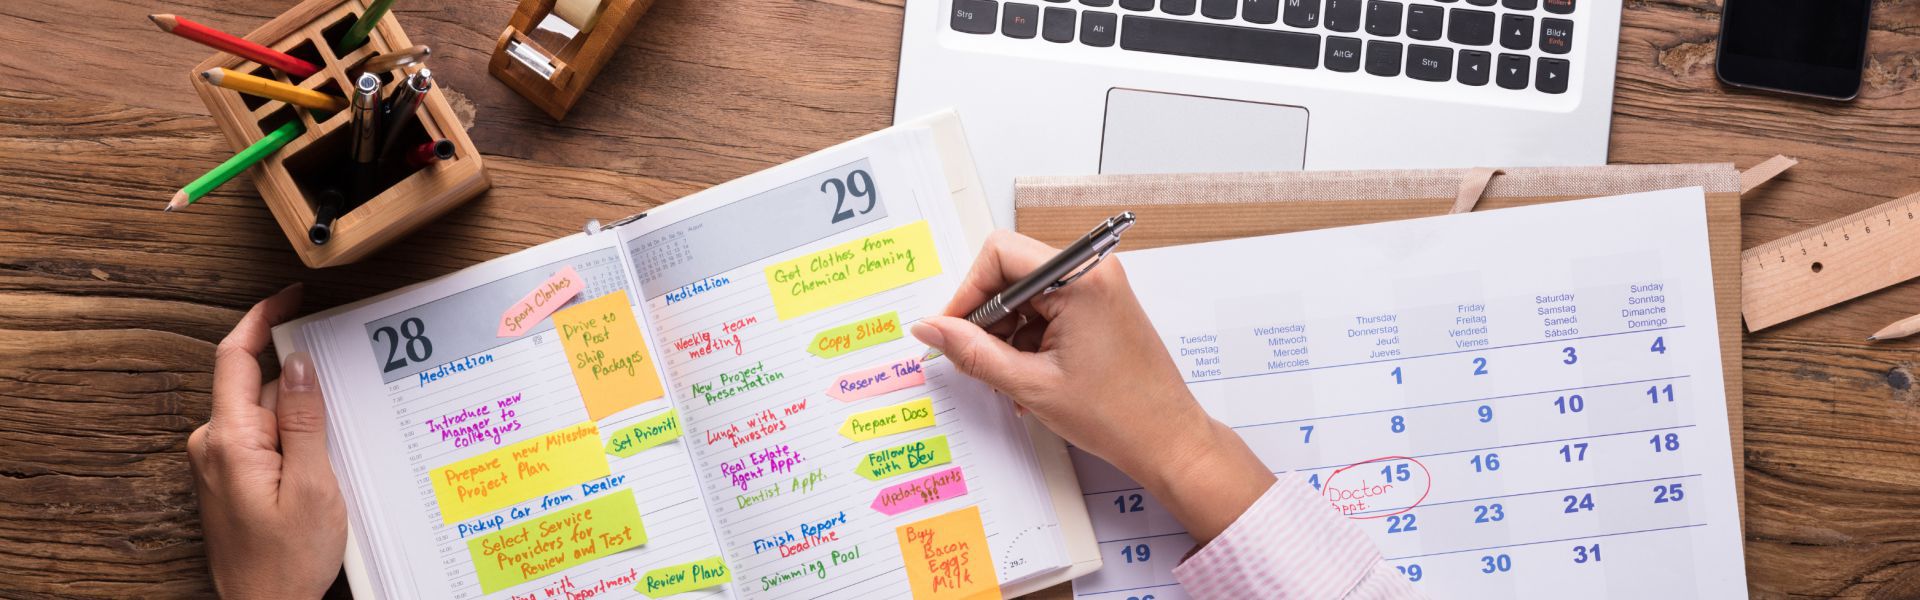 Strg
Fn
Alt
AltGr
Strg
Bild
28
Sport Clothes
Meditation
Drive to
Post
Ship
Packages
Introduce new
Manager to
Colleagues
Set Prioriti
Prepare new Milestone
Project Plan
Pickup Car from Dealer
Select Service
Providers for
Review and Test
with
Department
Review Plans
29
August
Meditation
Get Clothes from
Chemical cleaning
Weekly team
meeting
Copy Slides
New Project
Presentation
Reserve Table
Lunch with new
Investors
Prepare Docs
Real Estate
Agent Appt.
Follow up
with Dev
Dentist Appt.
Update Charts
!!!
Finish Report
Deadline
Swimming Pool
Buy
Bacon
Eggs
Milk
29.7.
Tuesday Wednesday Thursday Friday Saturday Sunday
Dienstag Mittwoch Donnerstag Freitag Samstag Sonntag
Mardi Mercredi Jeudi Vendredi Samedi Dimanche
Martes Miércoles Jueves Viernes Sábado Domingo
1 2 3 4
7 8 9 10 11
15 16 17 18
Doctor
Appt.
12 22 23 24 25
19 30 31
1 2 3 4 5 6 7 8